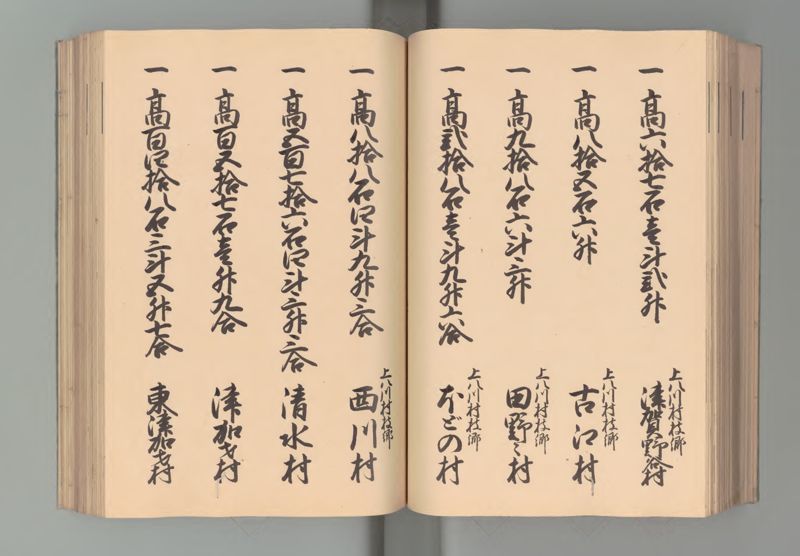 一 高六拾七石壱斗弐升
上八川村枝郷
津賀野谷村
一 高八拾五石六升
上八川村枝郷
古江村
一 高九拾八石六斗三升
上八川村枝郷
田野々村
一 高弐拾八石壱斗九升六合
上八川村枝郷
ほどの村
一 高八拾八石四斗九升三合
上八川村枝郷
西川村
一 高五百七拾六石四斗三升三合
清水村
一 高百五拾七石壱升九合
津加才村
一 高百四拾八石三斗五升七合
東津加才村